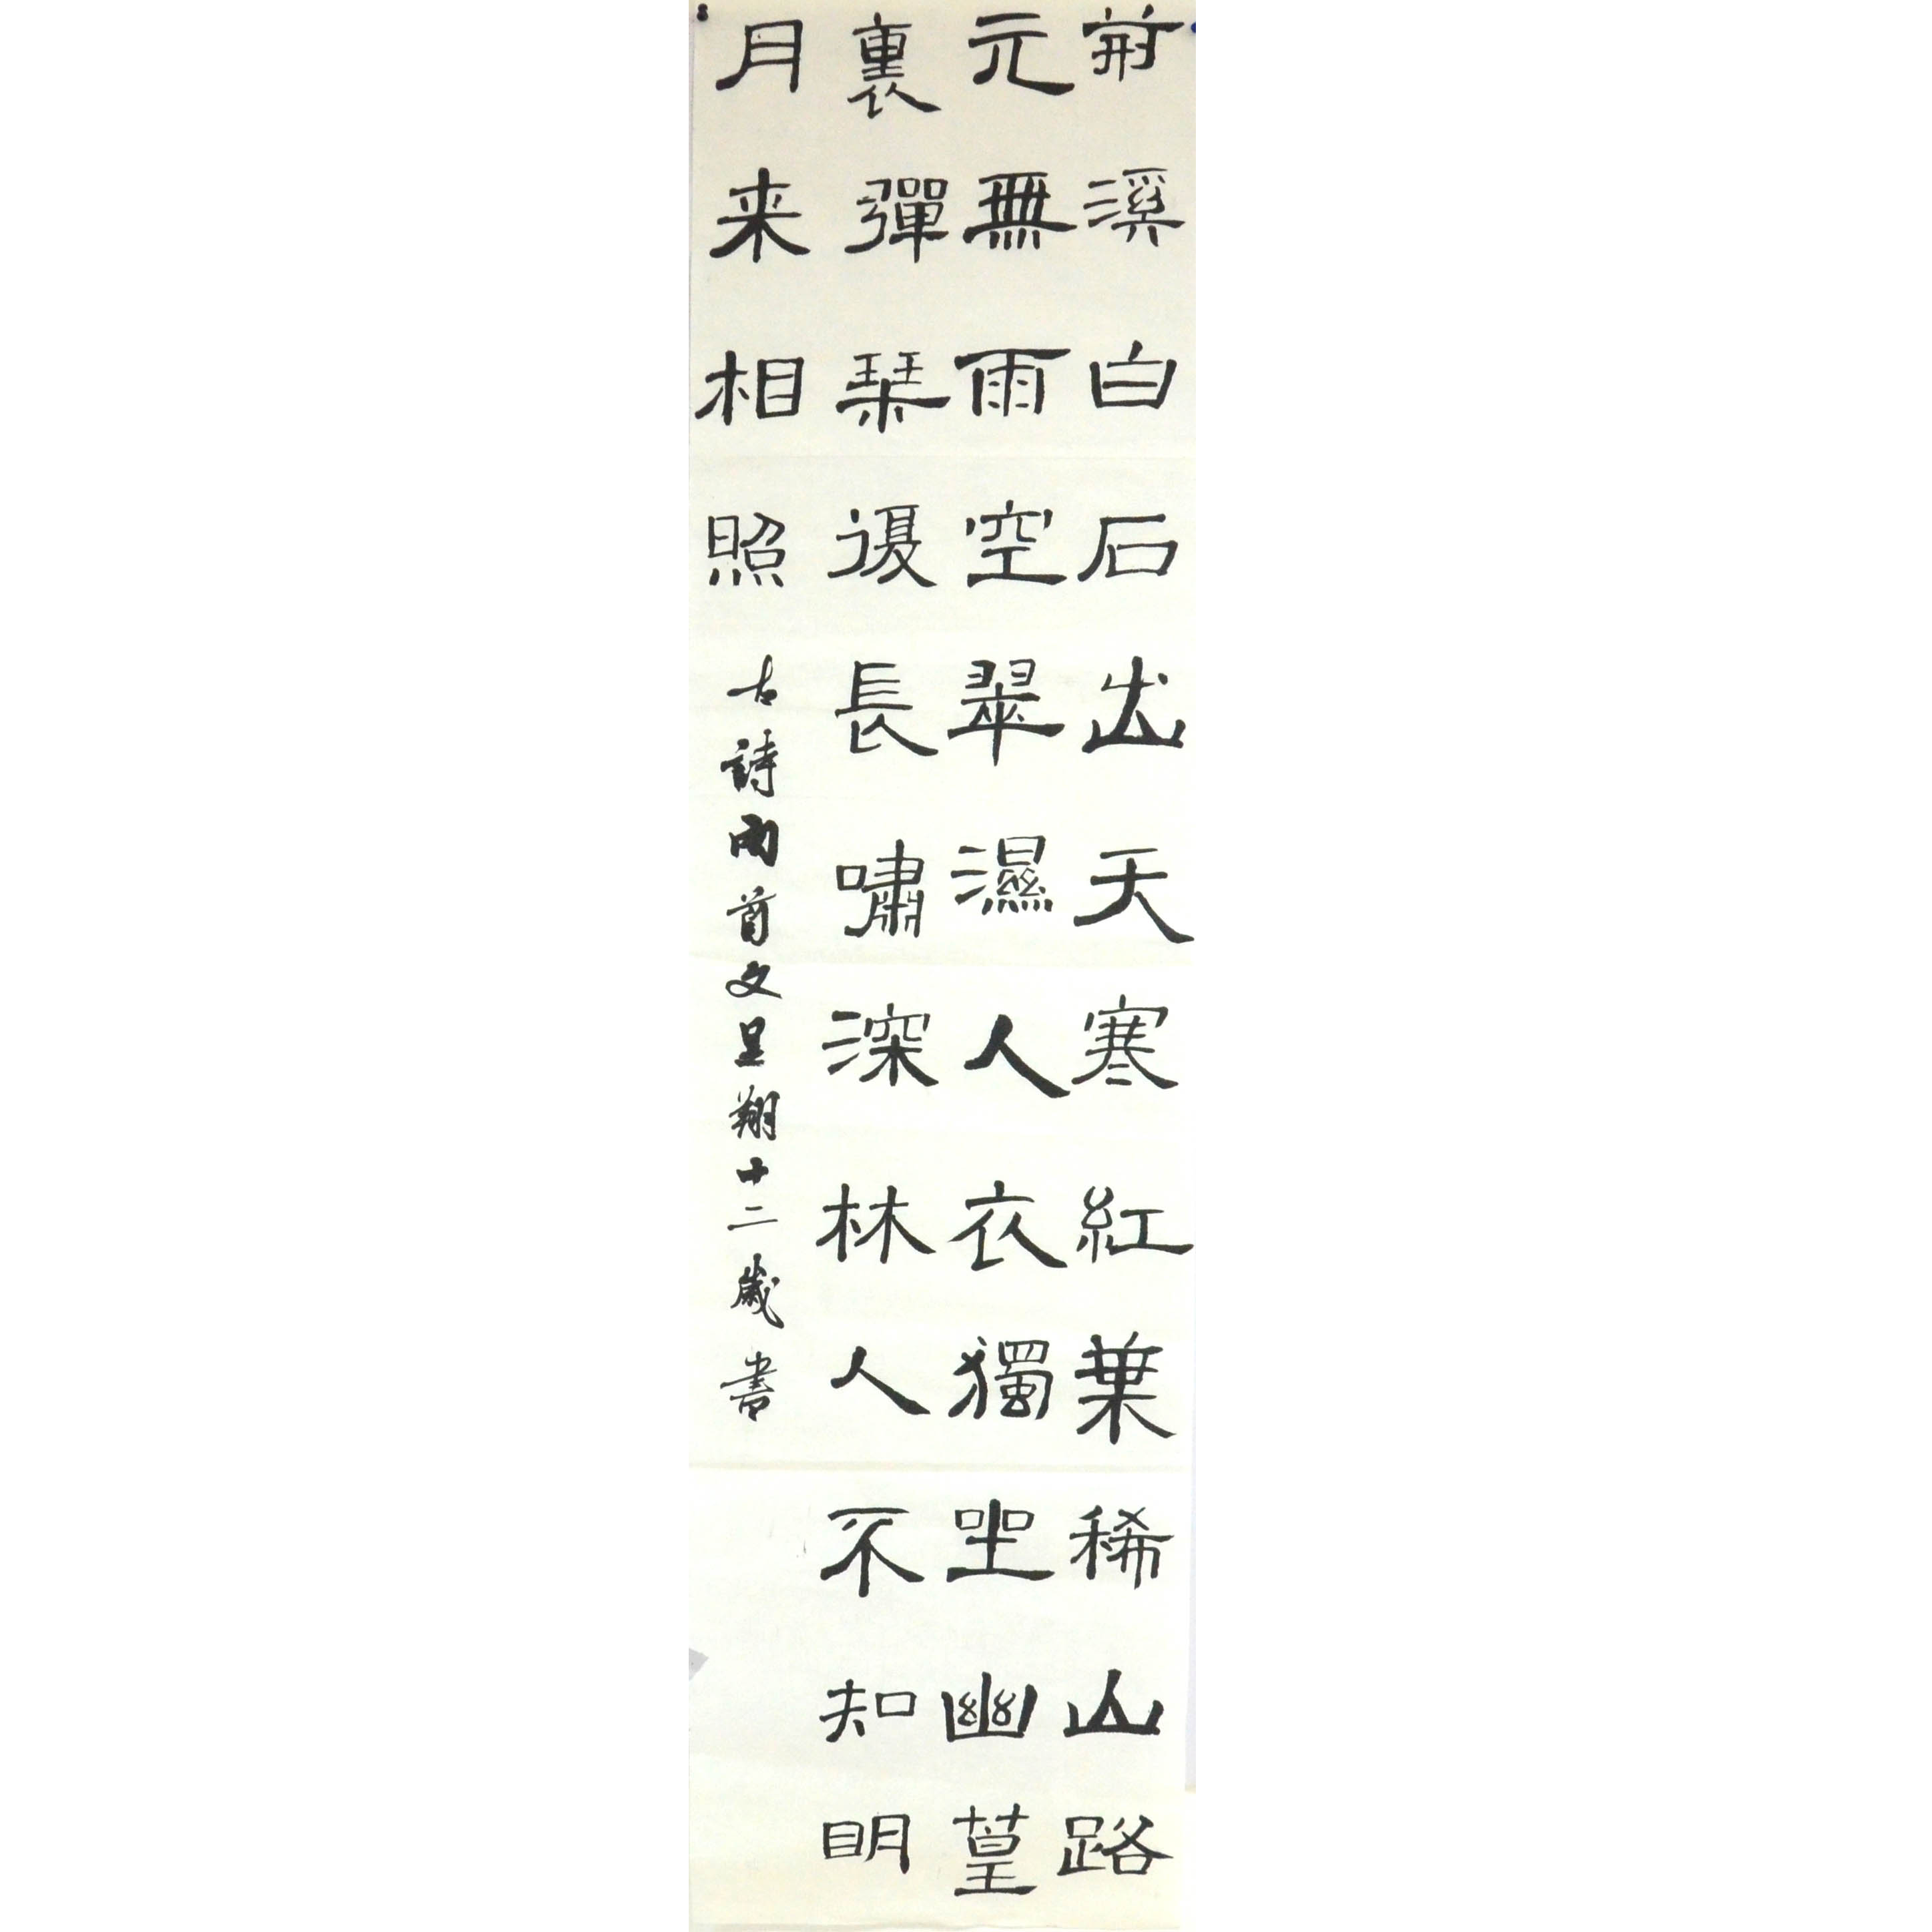 荊溪白石出天寒紅葉稀山路
元無雨空翠濕人衣獨坐幽篁
裏彈琴復長嘯深林人不知明
月来相照
古詩兩首文呈翔十二歲書